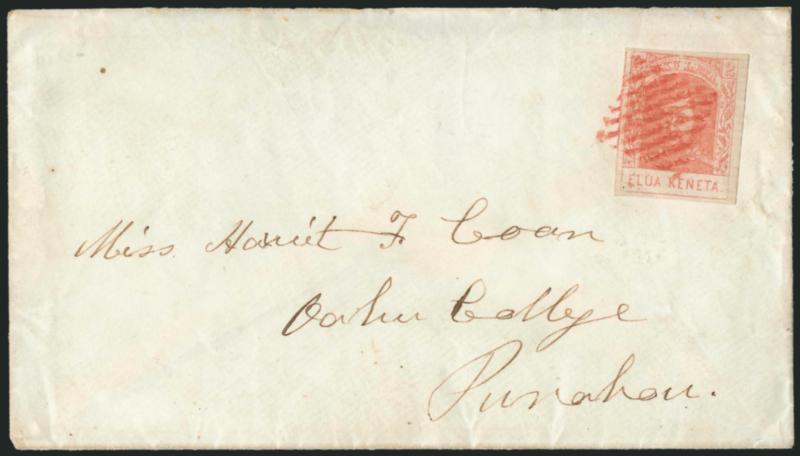 ELUA KENETA.
Miss. Harriet F. Coan
Oahu College
Punahou.